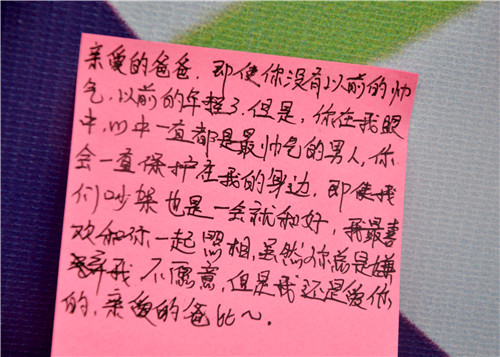 亲爱的爸爸，即使你没有以前的帅
气，以前的年轻了，但是，你在我眼
中，心中一直都是最帅气的男人，你
会一直保护在我的身边，即使我
们吵架也是一会就和好，我最喜
欢和你一起照相，虽然你总是嫌
弃我，不愿意，但是我还是爱你
的，亲爱的爸比～.